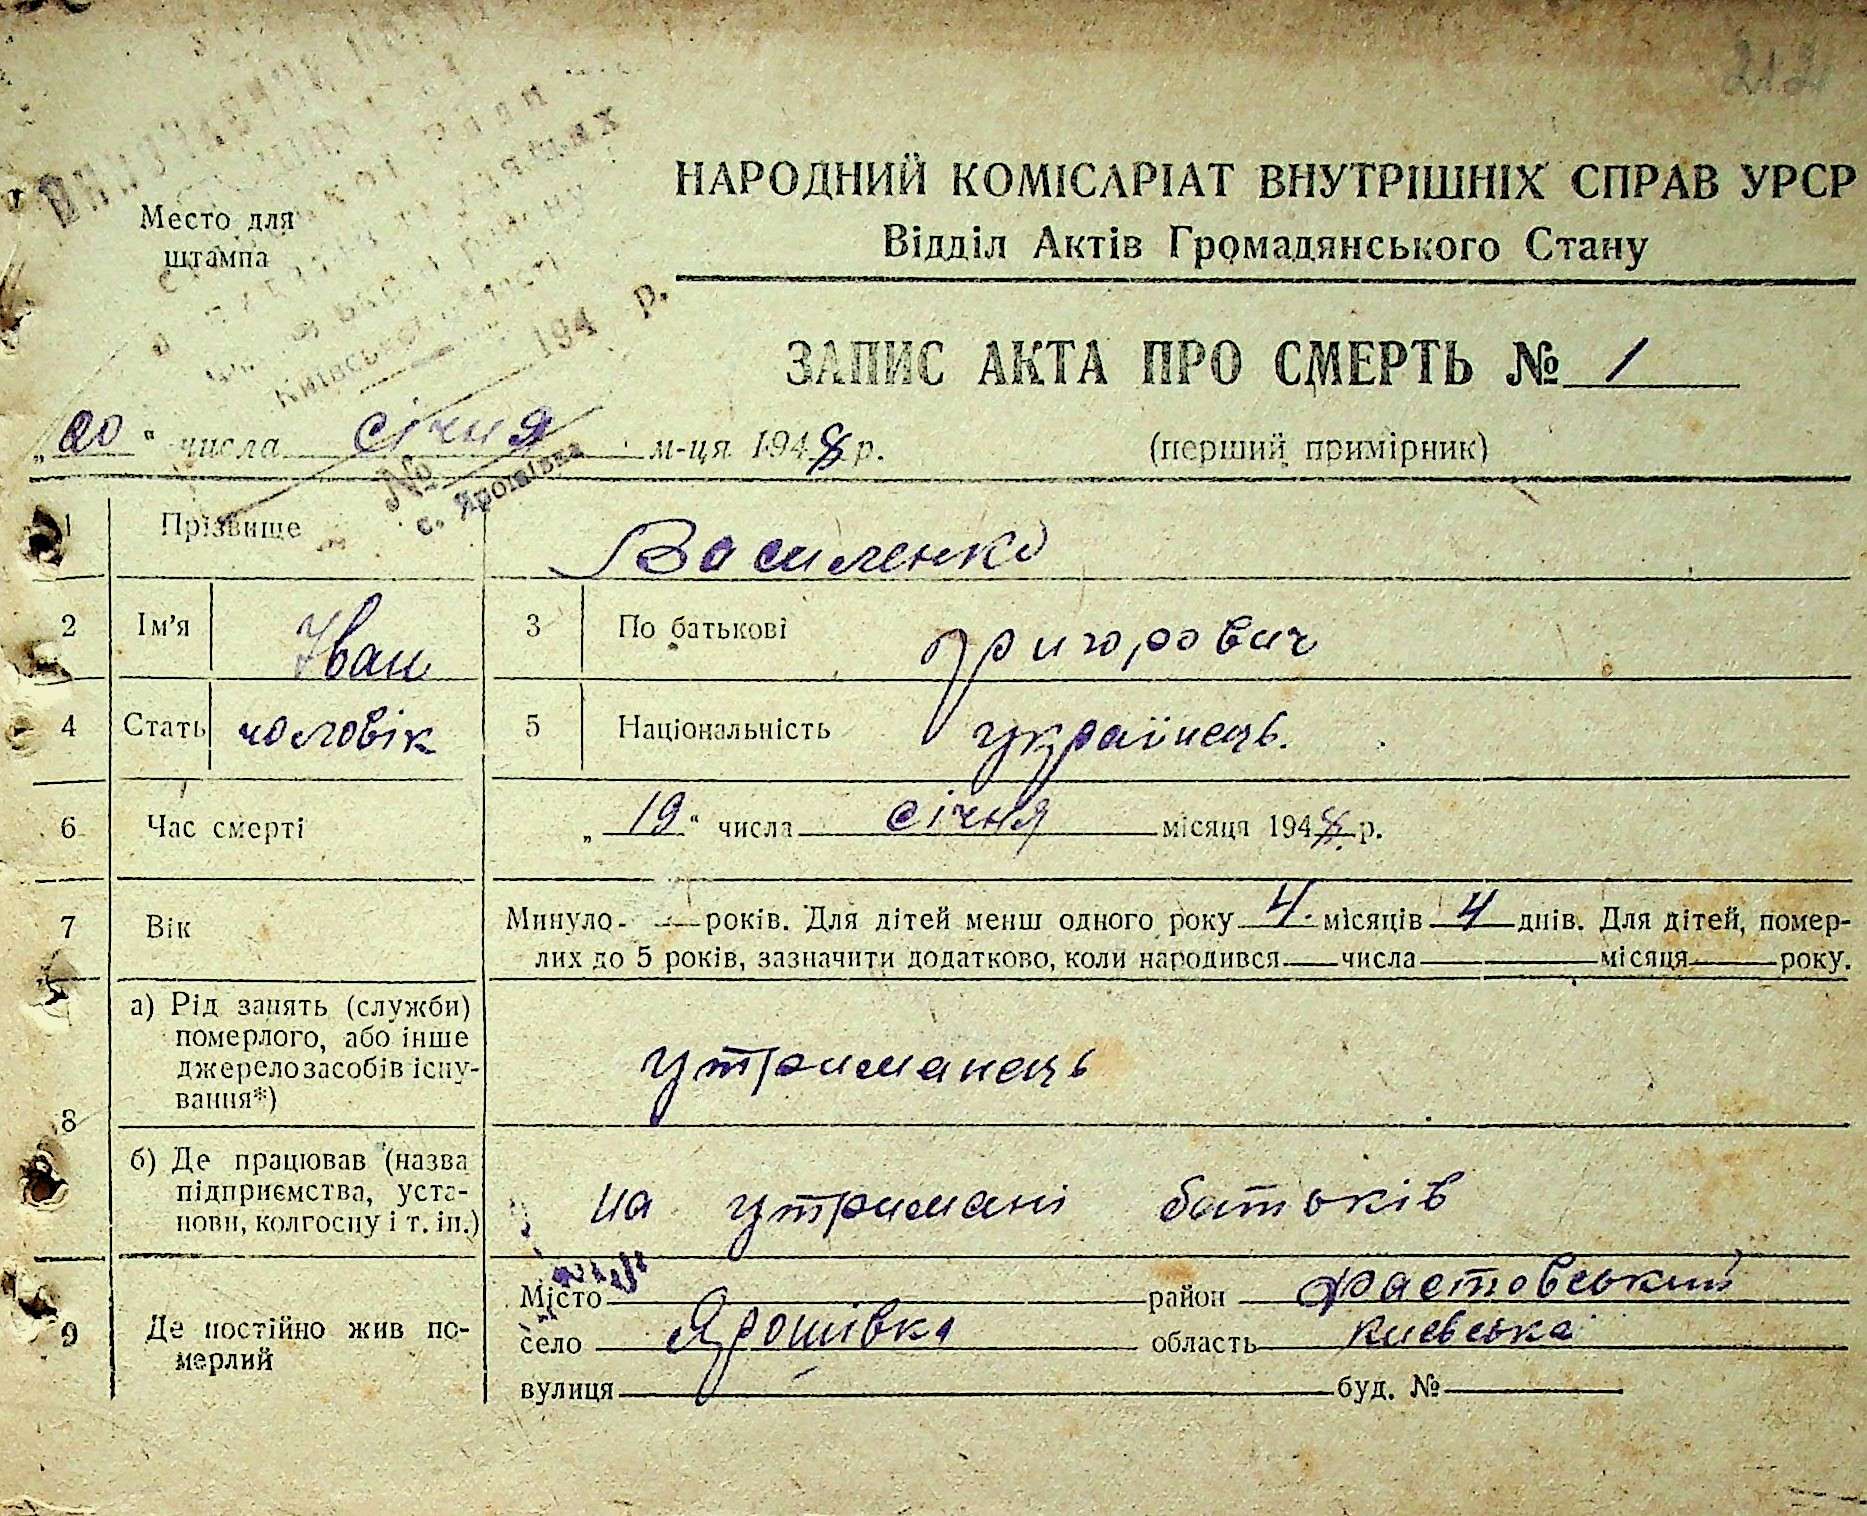 212
Место для
штампа
Київської області
194 р.
№
с. Ярошівка
НАРОДНИЙ КОМІСАРІАТ ВНУТРІШНІХ СПРАВ УРСР
Відділ Актів Громадянського Стану
ЗАПИС АКТА ПРО СМЕРТЬ № 1
„20“ числа січня м-ця 1948 р. (перший примірник)
1 Прізвище Василенко
2 Ім'я Іван 3 По батькові Григорович
4 Стать чоловік 5 Національність українець.
6 Час смерті „19“ числа січня місяця 1948 р.
7 Вік Минуло — років. Для дітей менш одного року 4 місяців 4 днів. Для дітей, помер-
лих до 5 років, зазначити додатково, коли народився числа місяця року.
8 а) Рід занять (служби)
померлого, або інше
джерело засобів існу-
вання*) утриманець
б) Де працював (назва
підприємства, уста-
нови, колгоспу і т. ін.) на утримані батьків
9 Де постійно жив по-
мерлий
Місто район Фастовський
село Ярошівка область Києвська
вулиця буд. №